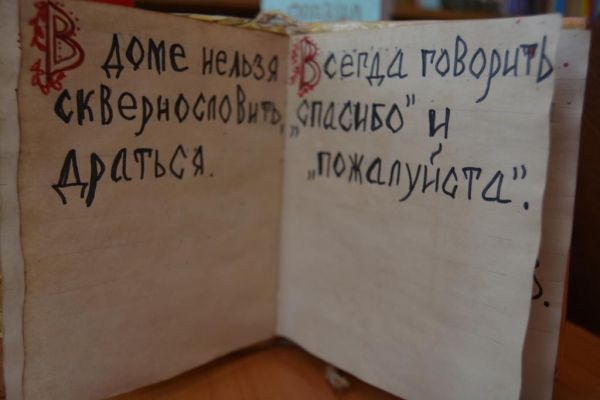 В доме нельзя
сквернословить,
драться.
Всегда говорить
„спасибо" и
„пожалуйста".